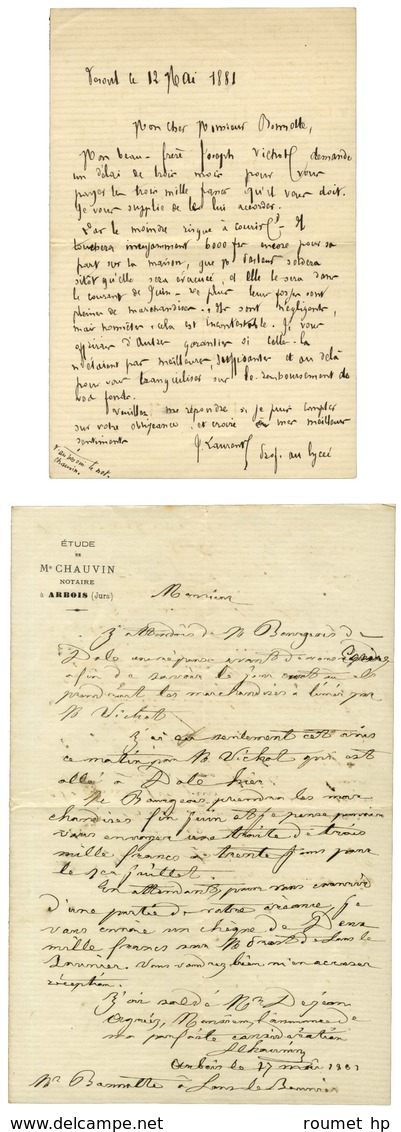 Vesoul le 12 Mai 1881
Mon cher Monsieur Bannotte,
Mon beau-frère Joseph Vichot demande
un délai de trois mois pour vous
payer les trois mille francs qu'il vous doit.
Je vous supplie de le lui accorder.
Pas le moindre risque à courir. Il
touchera incessamment 6000 frs encore pour sa
part sur la maison, que Mr Pasteur soldera
sitôt qu'elle sera évacuée, et elle le sera dans
le courant de Juin. De plus leur forge sont
pleines de marchandises. Ils sont négligents,
mais honnêtes: cela est incontestable. Je vous
offrirai d'autres garanties si celles-là
n'étaient pas meilleures, suffisantes et au delà
pour vous tranquilliser sur le remboursement de
vos fonds.
Veuillez me répondre si je puis compter
sur votre obligeance, et croire à mes meilleurs
sentiments
J Laurent
Prof. au lycée
le not.
Chauvin.
ÉTUDE
DE
Me CHAUVIN
NOTAIRE
à ARBOIS (Jura)
Monsieur
J'attendais de M Bourgeois de
Dole une réponse avant de vous écrire
afin de savoir le jour
prendrait les marchandises à livrer par
M Vichot.
J'ai eu seulement cet avis
ce matin par M Vichot qui est
allé à Dole hier.
M Bourgeois prendra les mar
chandises fin juin et je pense pouvoir
vous envoyer une traite de trois
mille francs à trente jours pour
le 1er juillet.
En attendant, pour vous couvrir
d'une partie de votre créance, je
vous envoie un chèque de Deux
mille francs sur M Prost de Lons le
Saunier. Vous voudrez bien m'en accuser
réception.
J'ai soldé Mr Dejean
Agréez, Monsieur, l'assurance de
ma parfaite considération
Chauvin
Arbois le 17 mai 1881
Mr Bannotte à Lons le Saunier